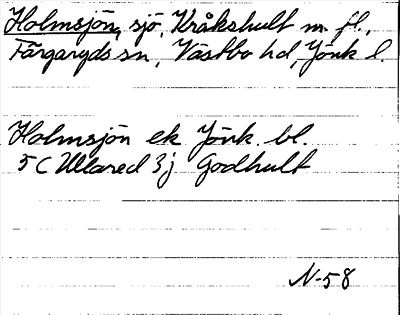 Holmsjön, sjö, Kråkshult m. fl.,
Färgaryds sn, Västbo hd, Jönk l.
Holmsjön ek Jönk. bl.
5C Ullared 3j Godhult
N-58